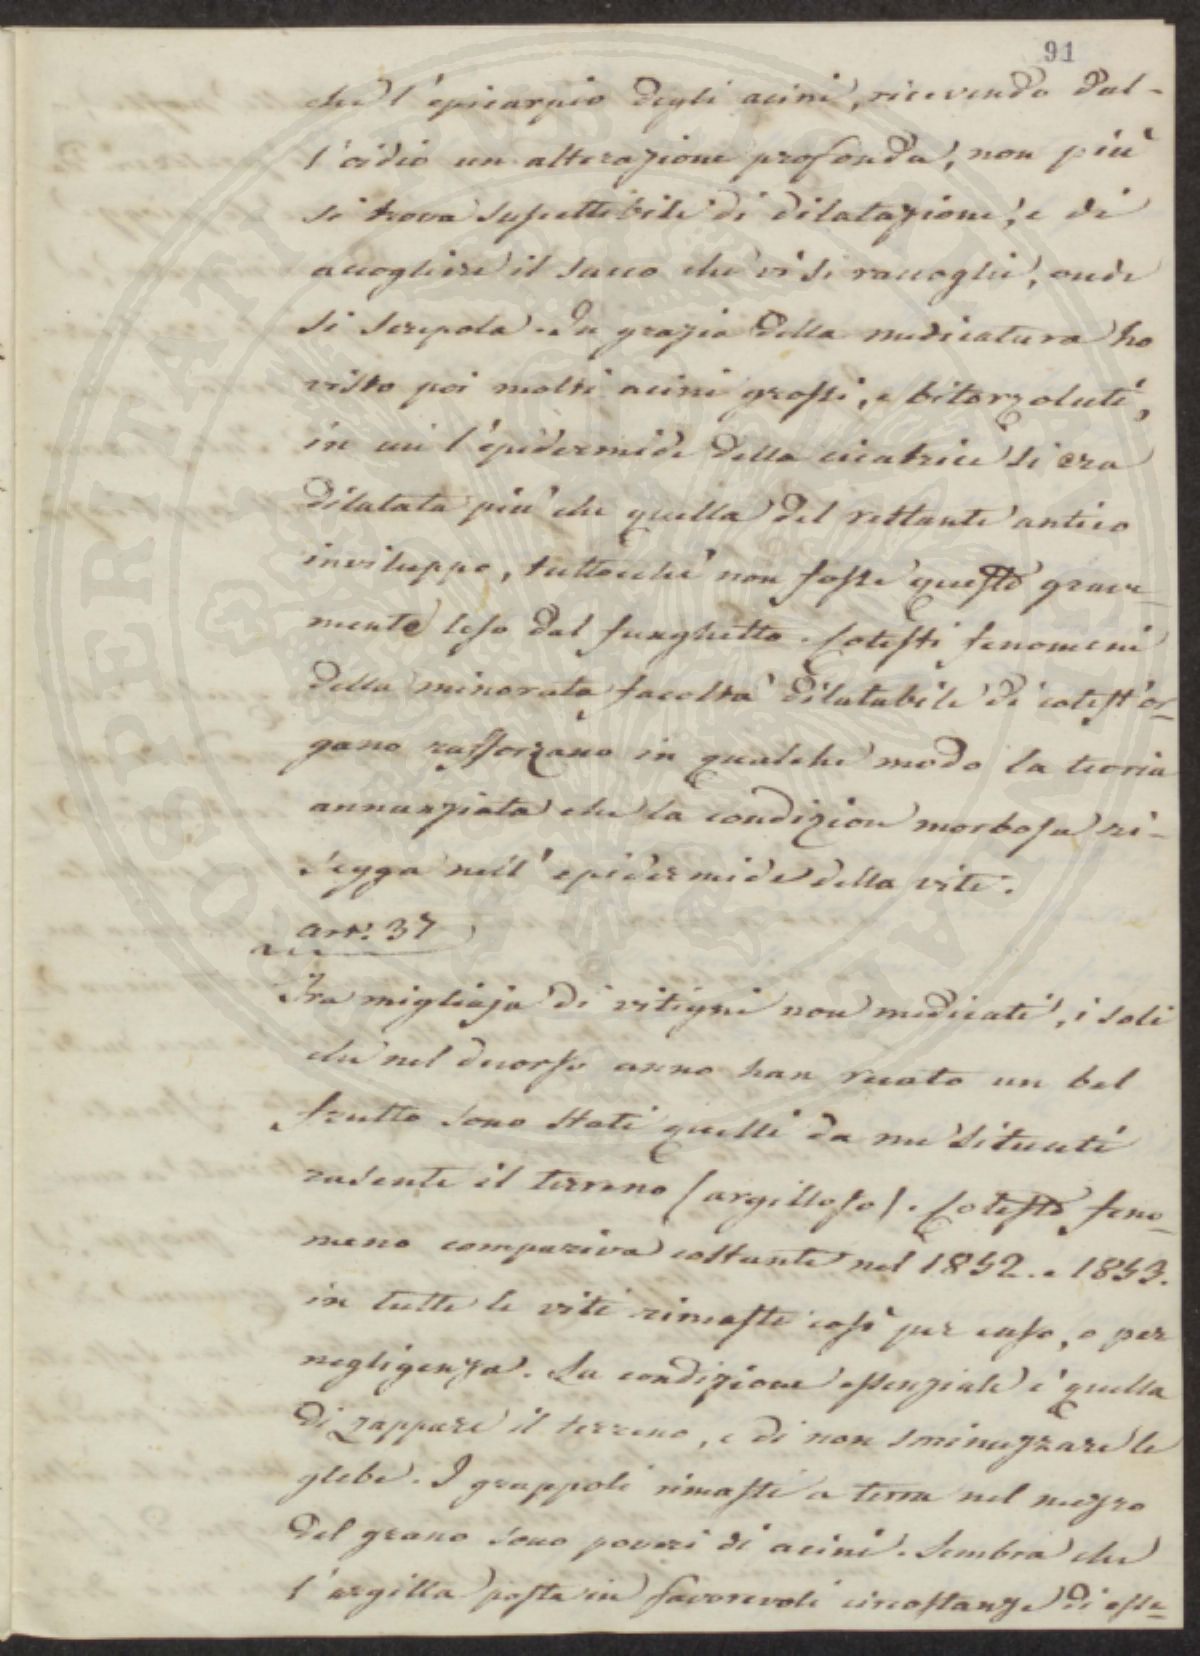 91
che l'epicarpio degli acini, ricevendo dal-
l'oidio un alterazione profonda, non più
si trova suscettibile di dilatazione, e di
accogliere il succo che vi si raccoglie, onde
si screpola. In grazia della medicatura ho
visto poi molti acini grossi, e bitorzoluti,
in cui l'epidermide della cicatrice si era
dilatata più che quella del restante antico
inviluppo, tuttocchè non fosse questo grave-
mente leso dal funghetto. Cotesti fenomeni
della minorata facoltà dilatabile di cotest'or-
gano rafforzano in qualche modo la teoria
annunziata che la condizion morbosa ri-
segga nell'epidermide della vite.
art.º 37
Tra migliaja di vitigni non medicati, i soli
che nel decorso anno han recato un bel
frutto sono stati quelli da me situati
rasente il terreno (argilloso). Cotesto feno-
meno compariva costante nel 1852. e 1853.
in tutte le viti rimaste così per caso, o per
negligenza. La condizione essenziale è quella
di zappare il terreno, e di non sminuzzare le
glebe. I grappoli rimasti a terra nel mezzo
del grano sono poveri di acini. Sembra che
l'argilla posta in favorevoli circostanze di esse-
PROSPERITATI PUBLICAE AUGENDAE